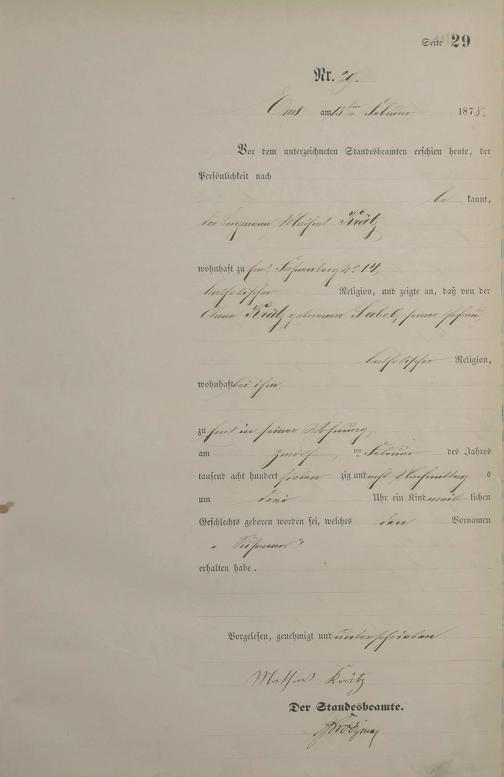 Seite 29
Nr. 29.
Ems am 13ten Februar 1878.
Vor dem unterzeichneten Standesbeamten erschien heute, der
Persönlichkeit nach
be kannt,
der Bergmann Mathias Krätz
wohnhaft zu Ems, 14,
katholischer Religion, und zeigte an, daß von der
Anna Krätz geborenen seiner Ehefrau
katholischer Religion,
wohnhaft bei ihm
zu Ems in seiner Wohnung,
am zwölf ten Februar des Jahres
tausend acht hundert sieben zig und acht Nachmittag s
um drei Uhr ein Kind lichen
Geschlechts geboren worden sei, welches den Vornamen
erhalten habe.
Vorgelesen, genehmigt und unterschrieben
Mathias Krätz
Der Standesbeamte.